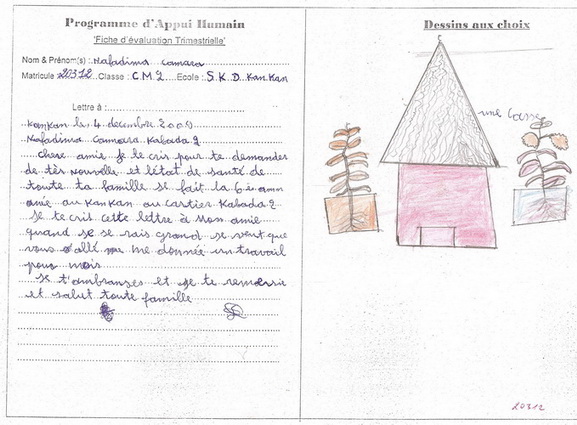 Programme d'Appui Humain
'Fiche d'évaluation Trimestrielle'
Nom & Prénom(s) : Nafadima camara
Matricule 20312 Classe : C M 2 Ecole : S K D Kan Kan
Lettre à :
Kankan le 4 décembre
Nafadima Camara Kabada 2
chere amie je te cris pour te demander
de tes nouvelle et l'état de santé de
toute ta famille se fait la 6 ie ann
amie au Kankan au cartier Kabada 2
Je te cris cette lettre à Mon amie
quand se se rais grand se veut que
vous allé me donnée un travail
pour mois
Je t'ambranses et je te remersie
et salut toute famille
Dessins aux choix
une casse
20312